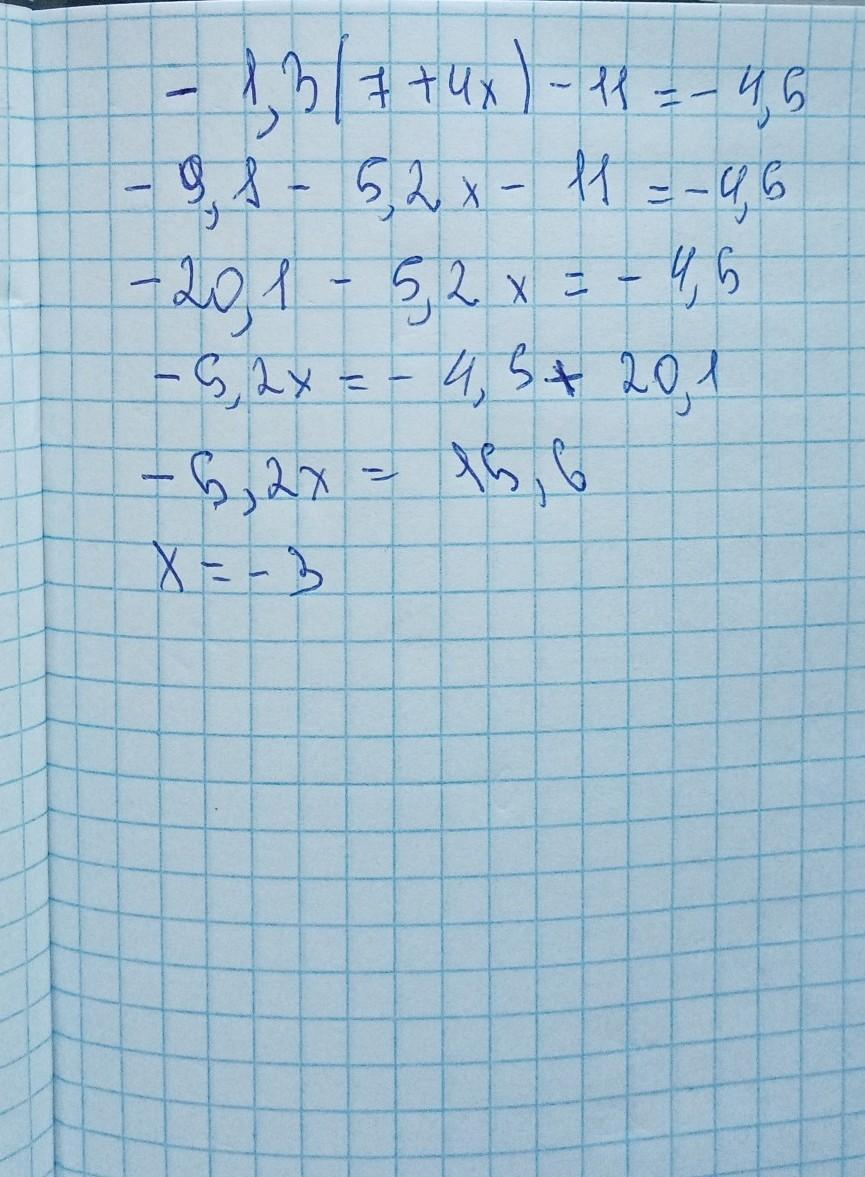 - 1,3(7+4x) - 11 = - 4,5
- 9,1 - 5,2x - 11 = - 4,5
- 20,1 - 5,2x = - 4,5
- 5,2x = - 4,5 + 20,1
- 5,2x = 15,6
x = - 3